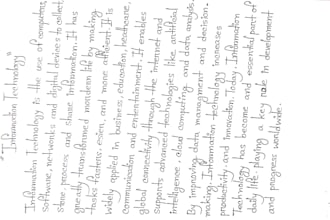 "Information Technology"
Information Technology is the use of computers,
Software, networks and digital devices to collect,
store, process and share information. It has
greatly transformed modern life by making
tasks faster, easier, and more efficient. It is
Widely applied in business, education, healthcare,
Communication and entertainment. It enables
global connectivity through the internet and
supports advanced technologies like artificial
intelligence, cloud computing and data analysis.
By improving data management and decision-
making, Information technology increases
productivity and innovation. Today, Information
technology has become and essential part of
daily life, playing a key role in development
and progress worldwide.